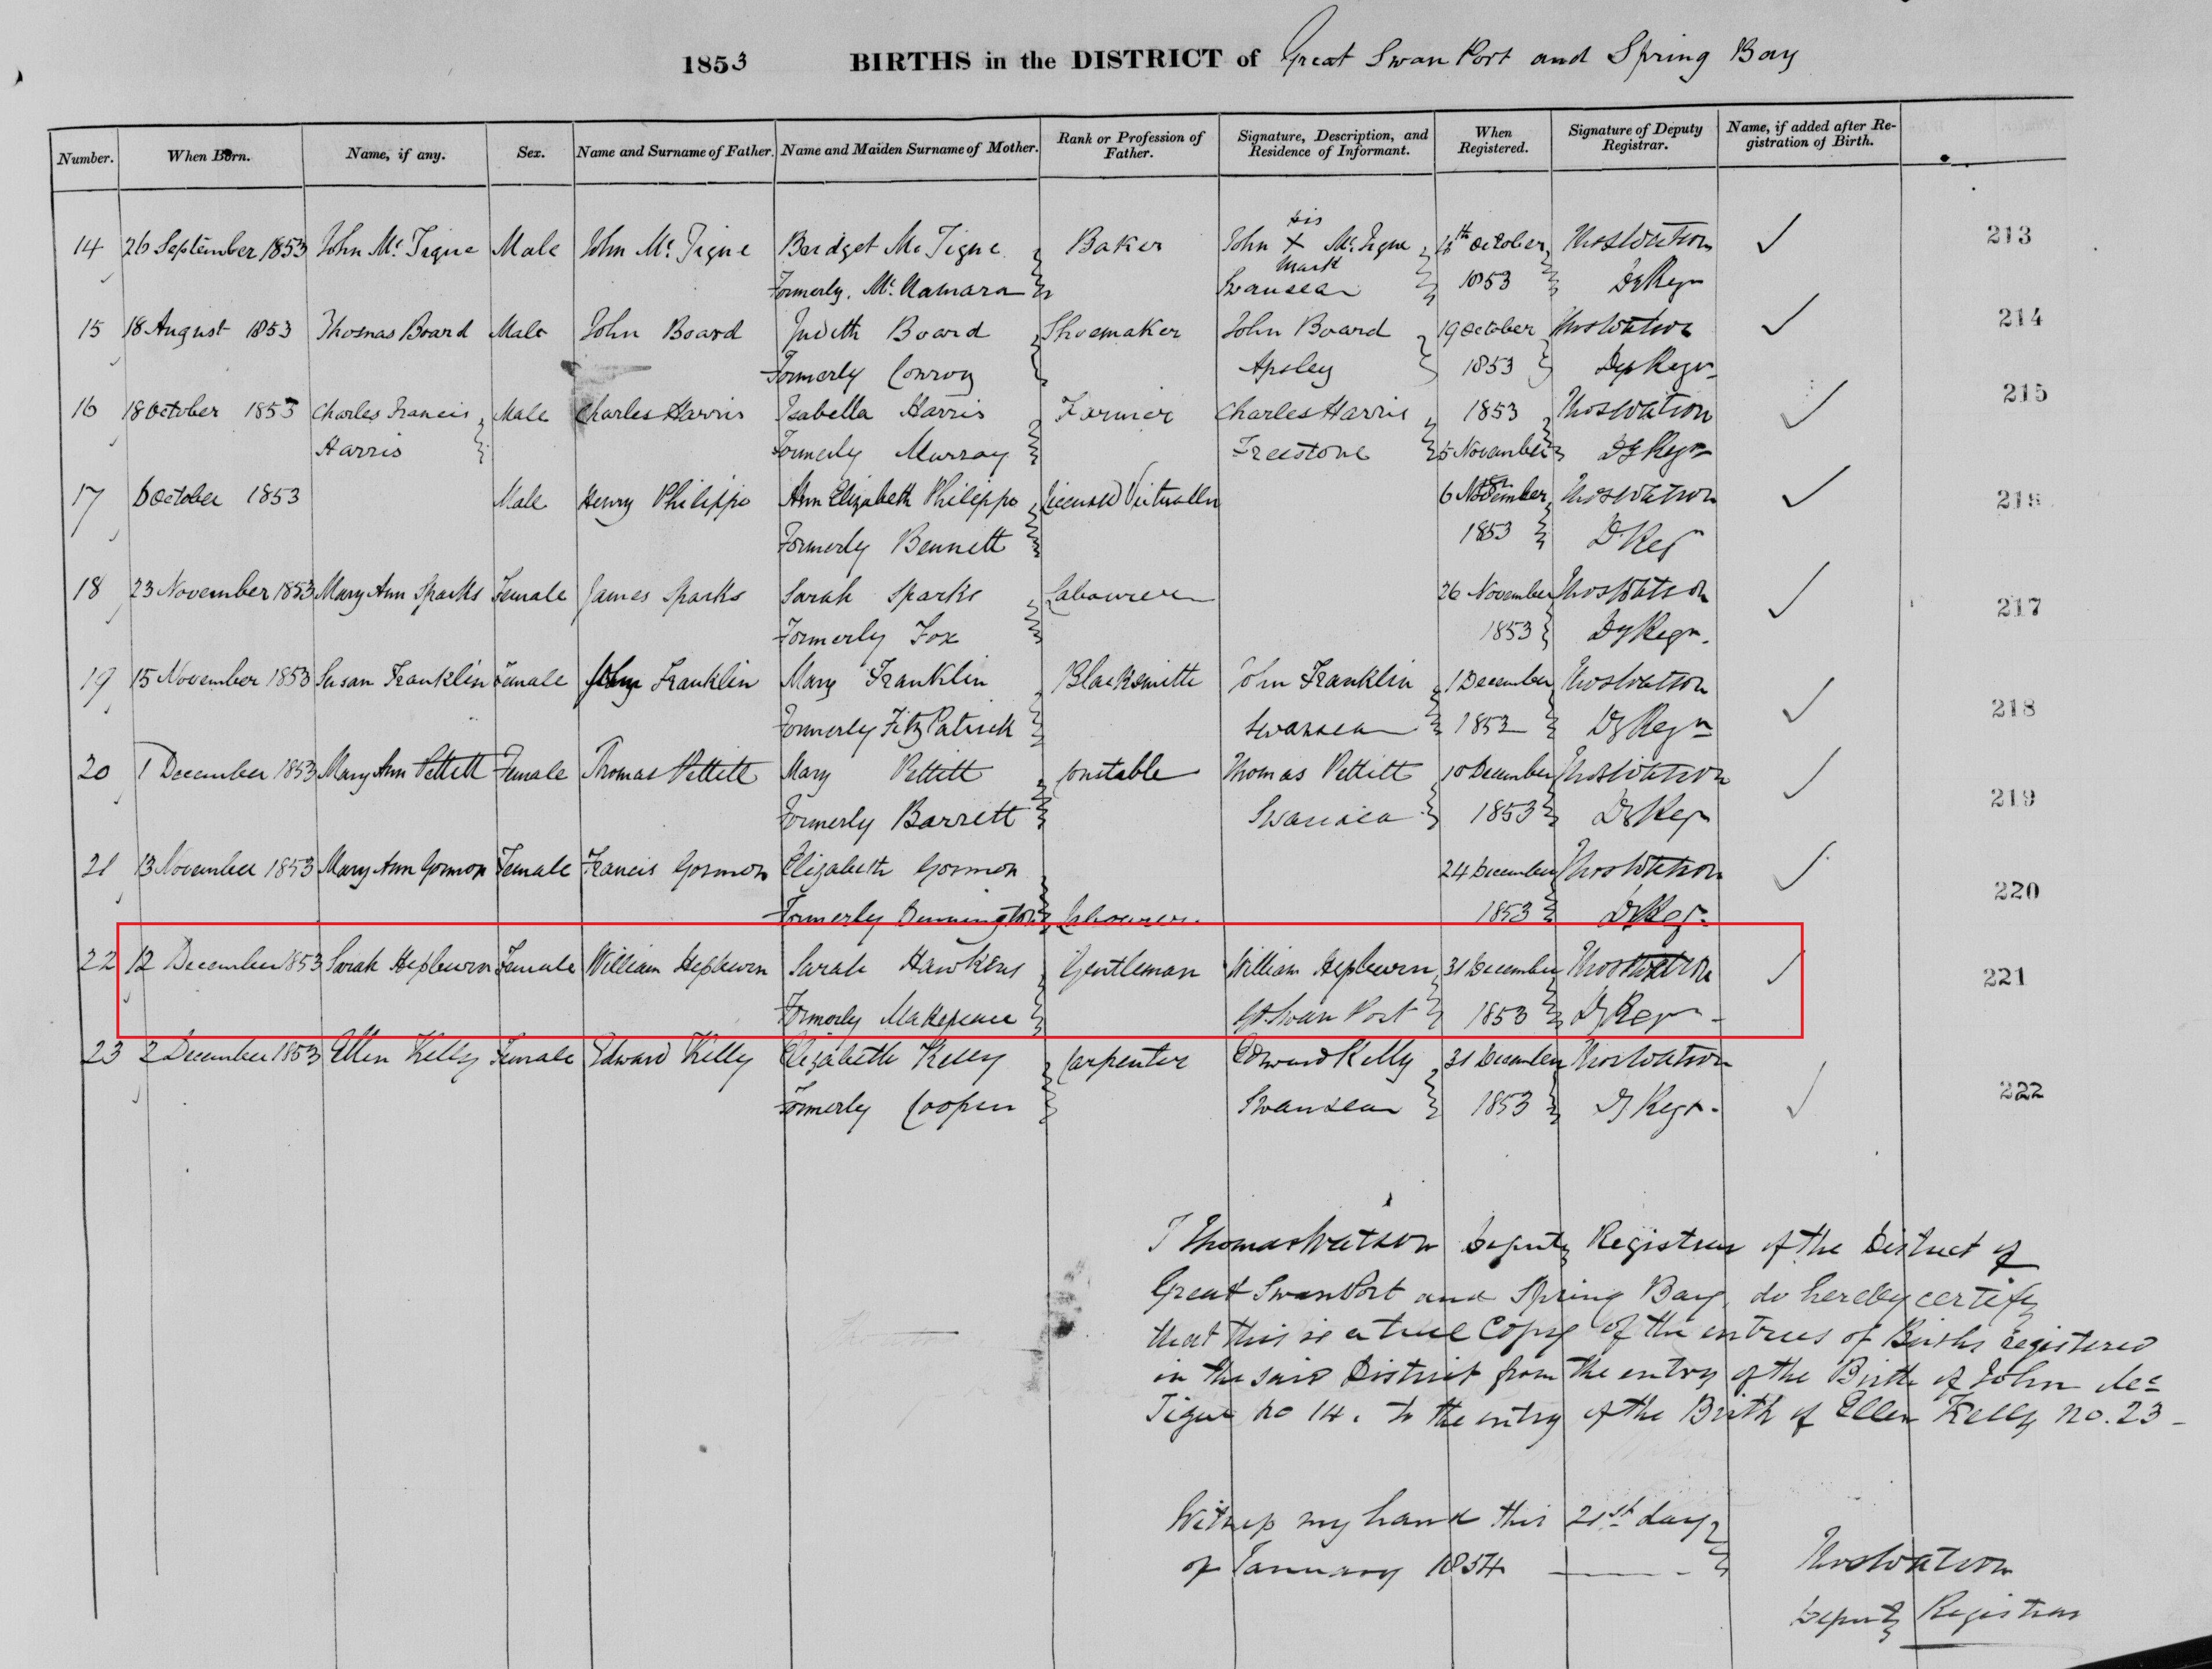 1853 BIRTHS in the DISTRICT of Great Swan Port and Spring Bay
Number. When Born. Name, if any. Sex. Name and Surname of Father. Name and Maiden Surname of Mother. Rank or Profession of Father. Signature, Description, and Residence of Informant. When Registered. Signature of Deputy Registrar. Name, if added after Registration of Birth.
his
14 26 September 1853 John Mc Tigue Male John Mc Tigue Bridget Mc Tigue Baker John X Mc Tigue October Thos Watson 213
mark
Formerly Mc Namara Swansea 1853 Dy Regr
15 18 August 1853 Thomas Board Male John Board Judith Board Shoemaker John Board 19 October Thos Watson 214
Formerly Conroy Apsley 1853 Dy Regr
16 18 October 1853 Charles Francis Male Charles Harris Isabella Harris Farmer Charles Harris 1853 Thos Watson 215
Harris Formerly Murray Freestone 5 November Dy Regr
17 October 1853 Male Henry Philippo Ann Elizabeth Philippo Licensed Victualler 6 November Thos Watson 216
Formerly Bennett 1853 D Reg
18 23 November 1853 Mary Ann Sparks Female James Sparks Sarah Sparks Labourer 26 November Thos Watson 217
Formerly Fox 1853 Dy Regr.
19 15 November 1853 Susan Franklin Female John Franklin Mary Franklin Blacksmith John Franklin 1 December Thos Watson 218
Formerly FitzPatrick Swansea 1853 Dy Regr
20 1 December 1853 Mary Ann Pettitt Female Thomas Pettitt Mary Pettitt Constable Thomas Pettitt 10 December Thos Watson 219
Formerly Barrett Swansea 1853 Dy Regr
21 13 November 1853 Mary Ann Gormon Female Francis Gormon Elizabeth Gormon 24 December Thos Watson 220
Formerly Labourer 1853 Dy Regr
22 12 December 1853 Sarah Hepburn Female William Hepburn Sarah Hawkens Gentleman William Hepburn 31 December Thos Watson 221
Formerly Makepeace Gt Swan Port 1853 Dy Regr
23 2 December 1853 Ellen Kelly Female Edward Kelly Elizabeth Kelly Carpenter Edward Kelly 31 December Thos Watson 222
Formerly Cooper Swansea 1853 Dy Regr.
I Thomas Watson Deputy Registrar of the District of
Great Swan Port and Spring Bay, do hereby certify
that this is a true Copy of the entries of Births registered
in the said District from the entry of the Birth of John Mc
Tigue no 14. to the entry of the Birth of Ellen Kelly no. 23
Witness my hand this 21st day
of January 1854
Thos Watson
Deputy Registrar